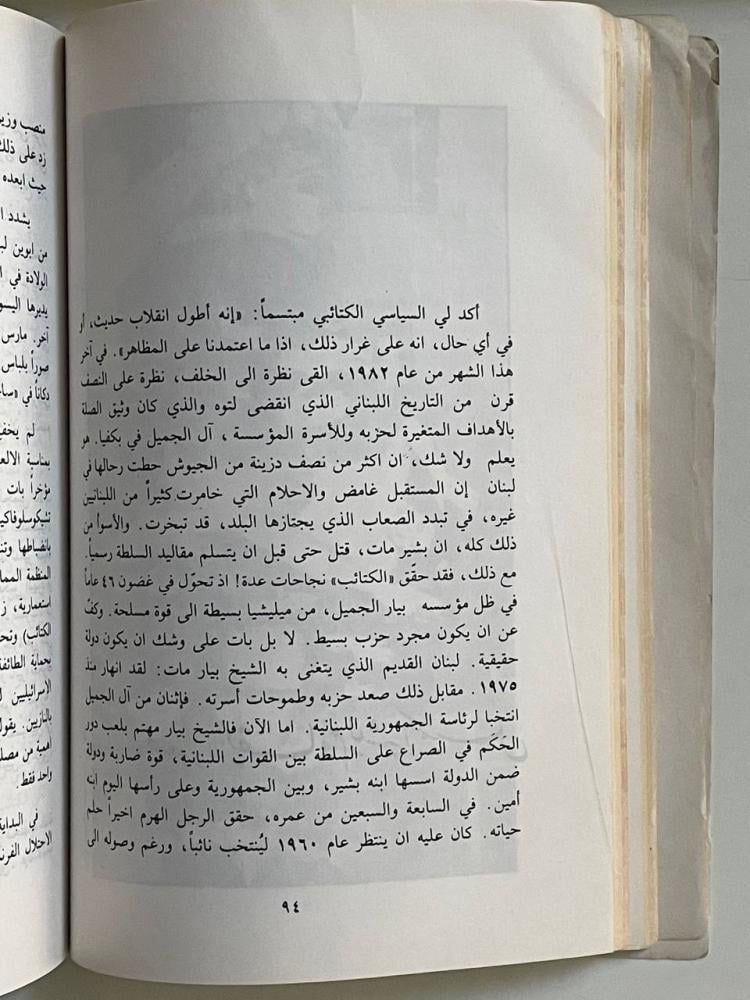 أكد لي السياسي الكتائبي مبتسماً: «إنه أطول انقلاب حديث، أو
في أي حال، انه على غرار ذلك، اذا ما اعتمدنا على المظاهر». في آخر
هذا الشهر من عام ١٩٨٢، القى نظرة الى الخلف، نظرة على النصف
قرن من التاريخ اللبناني الذي انقضى لتوه والذي كان وثيق الصلة
بالأهداف المتغيرة لحزبه وللأسرة المؤسسة، آل الجميل في بكفيا. هو
يعلم ولا شك، ان اكثر من نصف دزينة من الجيوش حطت رحالها في
لبنان إن المستقبل غامض والاحلام التي خامرت كثيراً من اللبنانيين
غيره، في تبدد الصعاب الذي يجتازها البلد، قد تبخرت. والأسوأ من
ذلك كله، ان بشير مات، قتل حتى قبل ان يتسلم مقاليد السلطة رسمياً.
مع ذلك، فقد حقّق «الكتائب» نجاحات عدة! اذ تحوّل في غضون ٤٦ عاماً
في ظل مؤسسه بيار الجميل، من ميليشيا بسيطة الى قوة مسلحة. وكفّ
عن ان يكون مجرد حزب بسيط. لا بل بات على وشك ان يكون دولة
حقيقية. لبنان القديم الذي يتغنى به الشيخ بيار مات: لقد انهار منذ
١٩٧٥. مقابل ذلك صعد حزبه وطموحات أسرته. فإثنان من آل الجميل
انتخبا لرئاسة الجمهورية اللبنانية. اما الآن فالشيخ بيار مهتم بلعب دور
الحَكَم في الصراع على السلطة بين القوات اللبنانية، قوة ضاربة ودولة
ضمن الدولة اسسها ابنه بشير، وبين الجمهورية وعلى رأسها اليوم ابنه
أمين. في السابعة والسبعين من عمره، حقق الرجل الهرم اخيراً حلم
حياته. كان عليه ان ينتظر عام ١٩٦٠ ليُنتخب نائباً، ورغم وصوله الى
٩٤
منصب وزير
زد على ذلك
حيث ابعده
يشدد
من ابوين
الولادة في
يديرها
آخر. مارس
صوراً بلباس
دكاناً في
لم
بمناسبة
مؤخراً بات
بانضباطها
المنظمة
استعمارية،
الكتائب)
بحماية
الاسرائيليين
بالنازيين. يقول
أهمية من
واحد فقط.
في البداية
الاحتلال